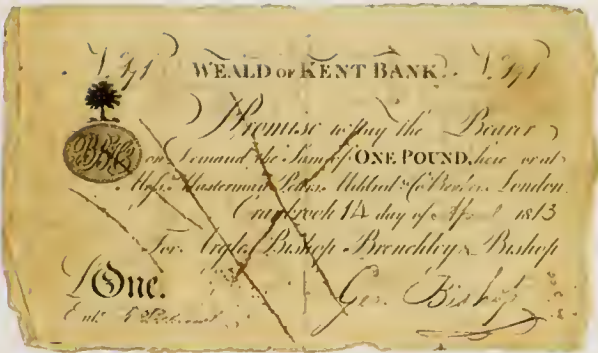 WEALD OF KENT BANK.
Promise to pay the Bearer
on Demand the Sum of ONE POUND, here or at
Messrs. Masterman Peters Mildred & Co. Bankers London.
Cranbrook 14 day of April 1813
For Argles Bishop Brenchley & Bishop
£One. Geo. Bishop
Entd.